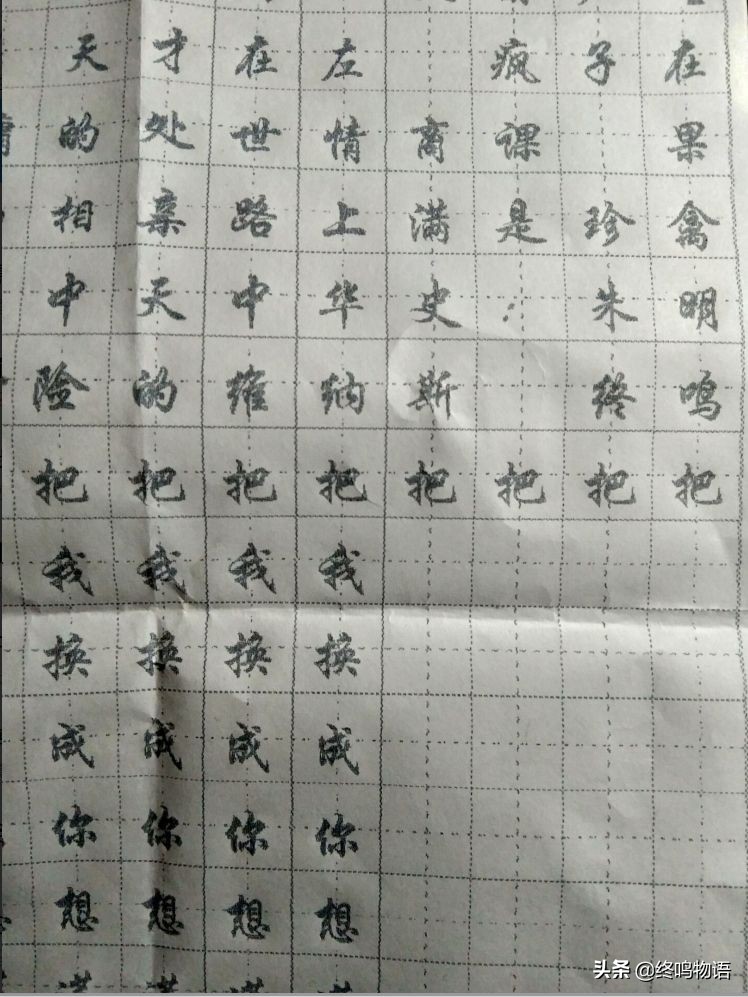 天才在左 疯子在
的处世情商课 果
相亲路上满是珍禽
中天中华史：朱明
险的维纳斯 终鸣
把把把把把把把把
我我我我
换换换换
成成成成
你你你你
想想想想
头条 @终鸣物语